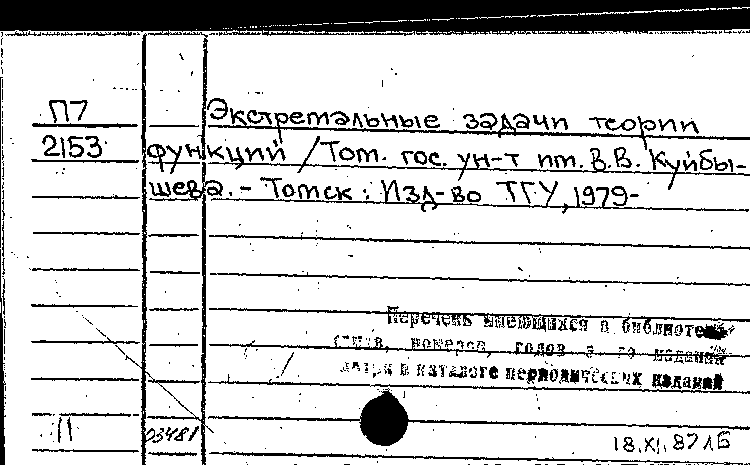 П7 Экстремальные задачи теории
2153 функций / Том. гос. ун-т им. В.В. Куйбы-
шева. - Томск: Изд-во ТГУ, 1979-
Перечень имеющихся в библиотеке
номеров, годов издания
в каталоге периодических изданий
11 03481 18.XI.87